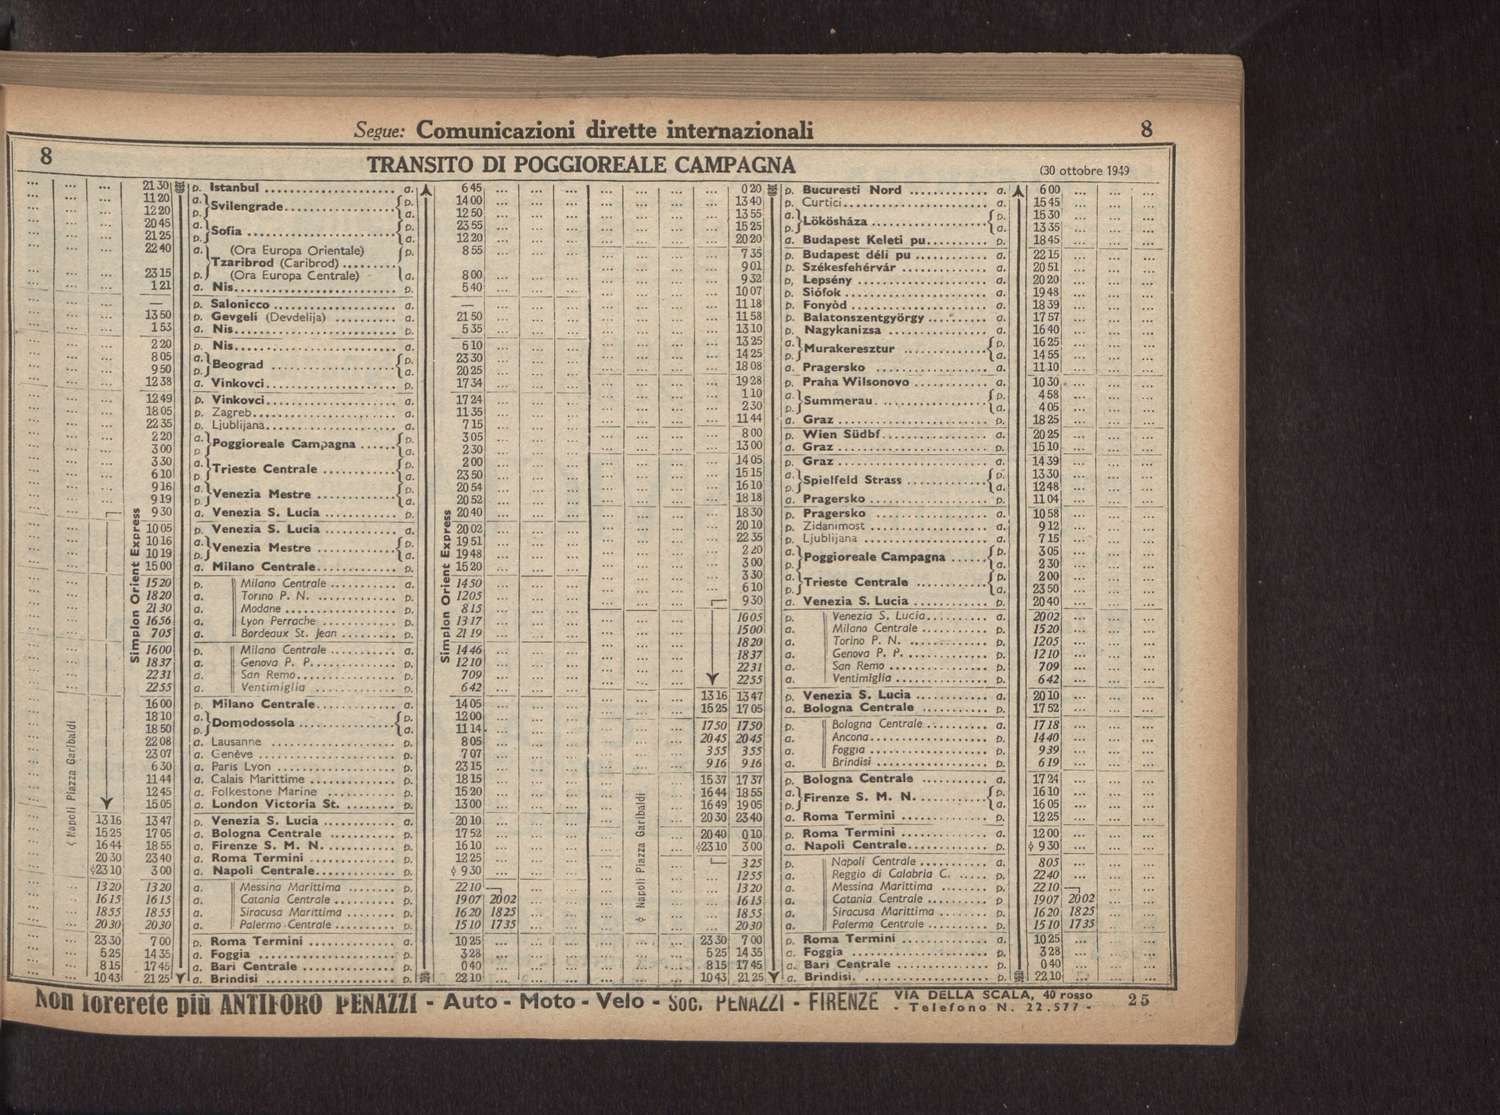 Segue: Comunicazioni dirette internazionali 8
8 TRANSITO DI POGGIOREALE CAMPAGNA (30 ottobre 1949
21 30 p. Istanbul a. 6 45
11 20 a. Svilengrade p. 14 00
12 20 p. a. 12 50
20 45 a. Sofia p. 23 55
21 25 p. a. 12 20
22 40 a. (Ora Europa Orientale) p. 8 55
Tzaribrod (Caribrod)
23 15 p. (Ora Europa Centrale) a. 8 00
1 21 a. Nis p. 5 40
— p. Salonicco a. —
13 50 p. Gevgeli (Devdelija) a. 21 50
1 53 a. Nis p. 5 35
2 20 p. Nis a. 6 10
8 05 a. Beograd p. 23 30
9 50 p. a. 20 25
12 38 a. Vinkovci p. 17 34
12 49 p. Vinkovci a. 17 24
18 05 p. Zagreb a. 11 35
22 35 p. Ljubljana a. 7 15
2 20 a. Poggioreale Campagna p. 3 05
3 00 p. a. 2 30
3 30 a. Trieste Centrale p. 2 00
6 10 p. a. 23 50
9 16 a. Venezia Mestre p. 20 54
9 19 p. a. 20 52
9 30 a. Venezia S. Lucia p. 20 40
10 05 p. Venezia S. Lucia a. 20 02
10 16 a. Venezia Mestre p. 19 51
10 19 p. a. 19 48
15 00 a. Milano Centrale p. 15 20
15 20 p. Milano Centrale a. 14 50
18 20 a. Torino P. N. p. 12 05
21 30 a. Modane p. 8 15
16 56 a. Lyon Perrache p. 13 17
7 05 a. Bordeaux St. Jean p. 21 19
16 00 p. Milano Centrale a. 14 46
18 37 a. Genova P. P. p. 12 10
22 31 a. San Remo p. 7 09
22 55 a. Ventimiglia p. 6 42
16 00 p. Milano Centrale a. 14 05
18 10 a. Domodossola p. 12 00
18 50 p. a. 11 14
22 08 a. Lausanne p. 8 05
23 07 a. Genève p. 7 07
6 30 a. Paris Lyon p. 23 15
11 44 a. Calais Marittime p. 18 15
12 45 a. Folkestone Marine p. 15 20
15 05 a. London Victoria St. p. 13 00
13 16 13 47 p. Venezia S. Lucia a. 20 10
15 25 17 05 a. Bologna Centrale p. 17 52
16 44 18 55 a. Firenze S. M. N. p. 16 10
20 30 23 40 a. Roma Termini p. 12 25
◊23 10 3 00 a. Napoli Centrale p. ◊ 9 30
13 20 13 20 a. Messina Marittima p. 22 10
16 15 16 15 a. Catania Centrale p. 19 07 20 02
18 55 18 55 a. Siracusa Marittima p. 16 20 18 25
20 30 20 30 a. Palermo Centrale p. 15 10 17 35
23 30 7 00 p. Roma Termini a. 10 25
5 25 14 35 a. Foggia p. 3 28
8 15 17 45 a. Bari Centrale p. 0 40
10 43 21 25 a. Brindisi p. 22 10
Simplon Orient Express
Simplon Orient Express
Napoli Piazza Garibaldi
0 20 p. Bucuresti Nord a. 6 00
13 40 p. Curtici a. 15 45
13 55 a. Lökösháza p. 15 30
15 25 p. a. 13 35
20 20 a. Budapest Keleti pu p. 18 45
7 35 p. Budapest déli pu a. 22 15
9 01 p. Székesfehérvár a. 20 51
9 32 p. Lepsény a. 20 20
10 07 p. Siófok a. 19 48
11 18 p. Fonyòd a. 18 39
11 58 p. Balatonszentgyörgy a. 17 57
13 10 p. Nagykanizsa a. 16 40
13 25 a. Murakeresztur p. 16 25
14 25 p. a. 14 55
18 08 a. Pragersko p. 11 10
19 28 p. Praha Wilsonovo a. 10 30
1 10 a. Summerau p. 4 58
2 30 p. a. 4 05
11 44 a. Graz p. 18 25
8 00 p. Wien Südbf. a. 20 25
13 00 a. Graz p. 15 10
14 05 p. Graz a. 14 39
15 15 a. Spielfeld Strass p. 13 30
16 10 p. a. 12 48
18 18 a. Pragersko p. 11 04
18 30 p. Pragersko a. 10 58
20 10 p. Zidanimost a. 9 12
22 35 p. Ljubljana a. 7 15
2 20 a. Poggioreale Campagna p. 3 05
3 00 p. a. 2 30
3 30 a. Trieste Centrale p. 2 00
6 10 p. a. 23 50
9 30 a. Venezia S. Lucia p. 20 40
10 05 p. Venezia S. Lucia a. 20 02
15 00 a. Milano Centrale p. 15 20
18 20 a. Torino P. N. p. 12 05
18 37 a. Genova P. P. p. 12 10
22 31 a. San Remo p. 7 09
22 55 a. Ventimiglia p. 6 42
13 16 13 47 p. Venezia S. Lucia a. 20 10
15 25 17 05 a. Bologna Centrale p. 17 52
17 50 17 50 p. Bologna Centrale a. 17 18
20 45 20 45 a. Ancona p. 14 40
3 55 3 55 a. Foggia p. 9 39
9 16 9 16 a. Brindisi p. 6 19
15 37 17 37 p. Bologna Centrale a. 17 24
16 44 18 55 a. Firenze S. M. N. p. 16 10
16 49 19 05 p. a. 16 05
20 30 23 40 a. Roma Termini p. 12 25
20 40 0 10 p. Roma Termini a. 12 00
◊23 10 3 00 a. Napoli Centrale p. ◊ 9 30
3 25 p. Napoli Centrale a. 8 05
12 55 a. Reggio di Calabria C. p. 22 40
13 20 a. Messina Marittima p. 22 10
16 15 a. Catania Centrale p 19 07 20 02
18 55 a. Siracusa Marittima p. 16 20 18 25
20 30 a. Palermo Centrale p. 15 10 17 35
23 30 7 00 p. Roma Termini a. 10 25
5 25 14 35 a. Foggia p. 3 28
8 15 17 45 a. Bari Centrale p. 0 40
10 43 21 25 a. Brindisi p. 22 10
◊ Napoli Piazza Garibaldi
Non forerete più ANTIFORO PENAZZI - Auto - Moto - Velo - Soc. PENAZZI - FIRENZE VIA DELLA SCALA, 40 rosso - Telefono N. 22.577 - 25